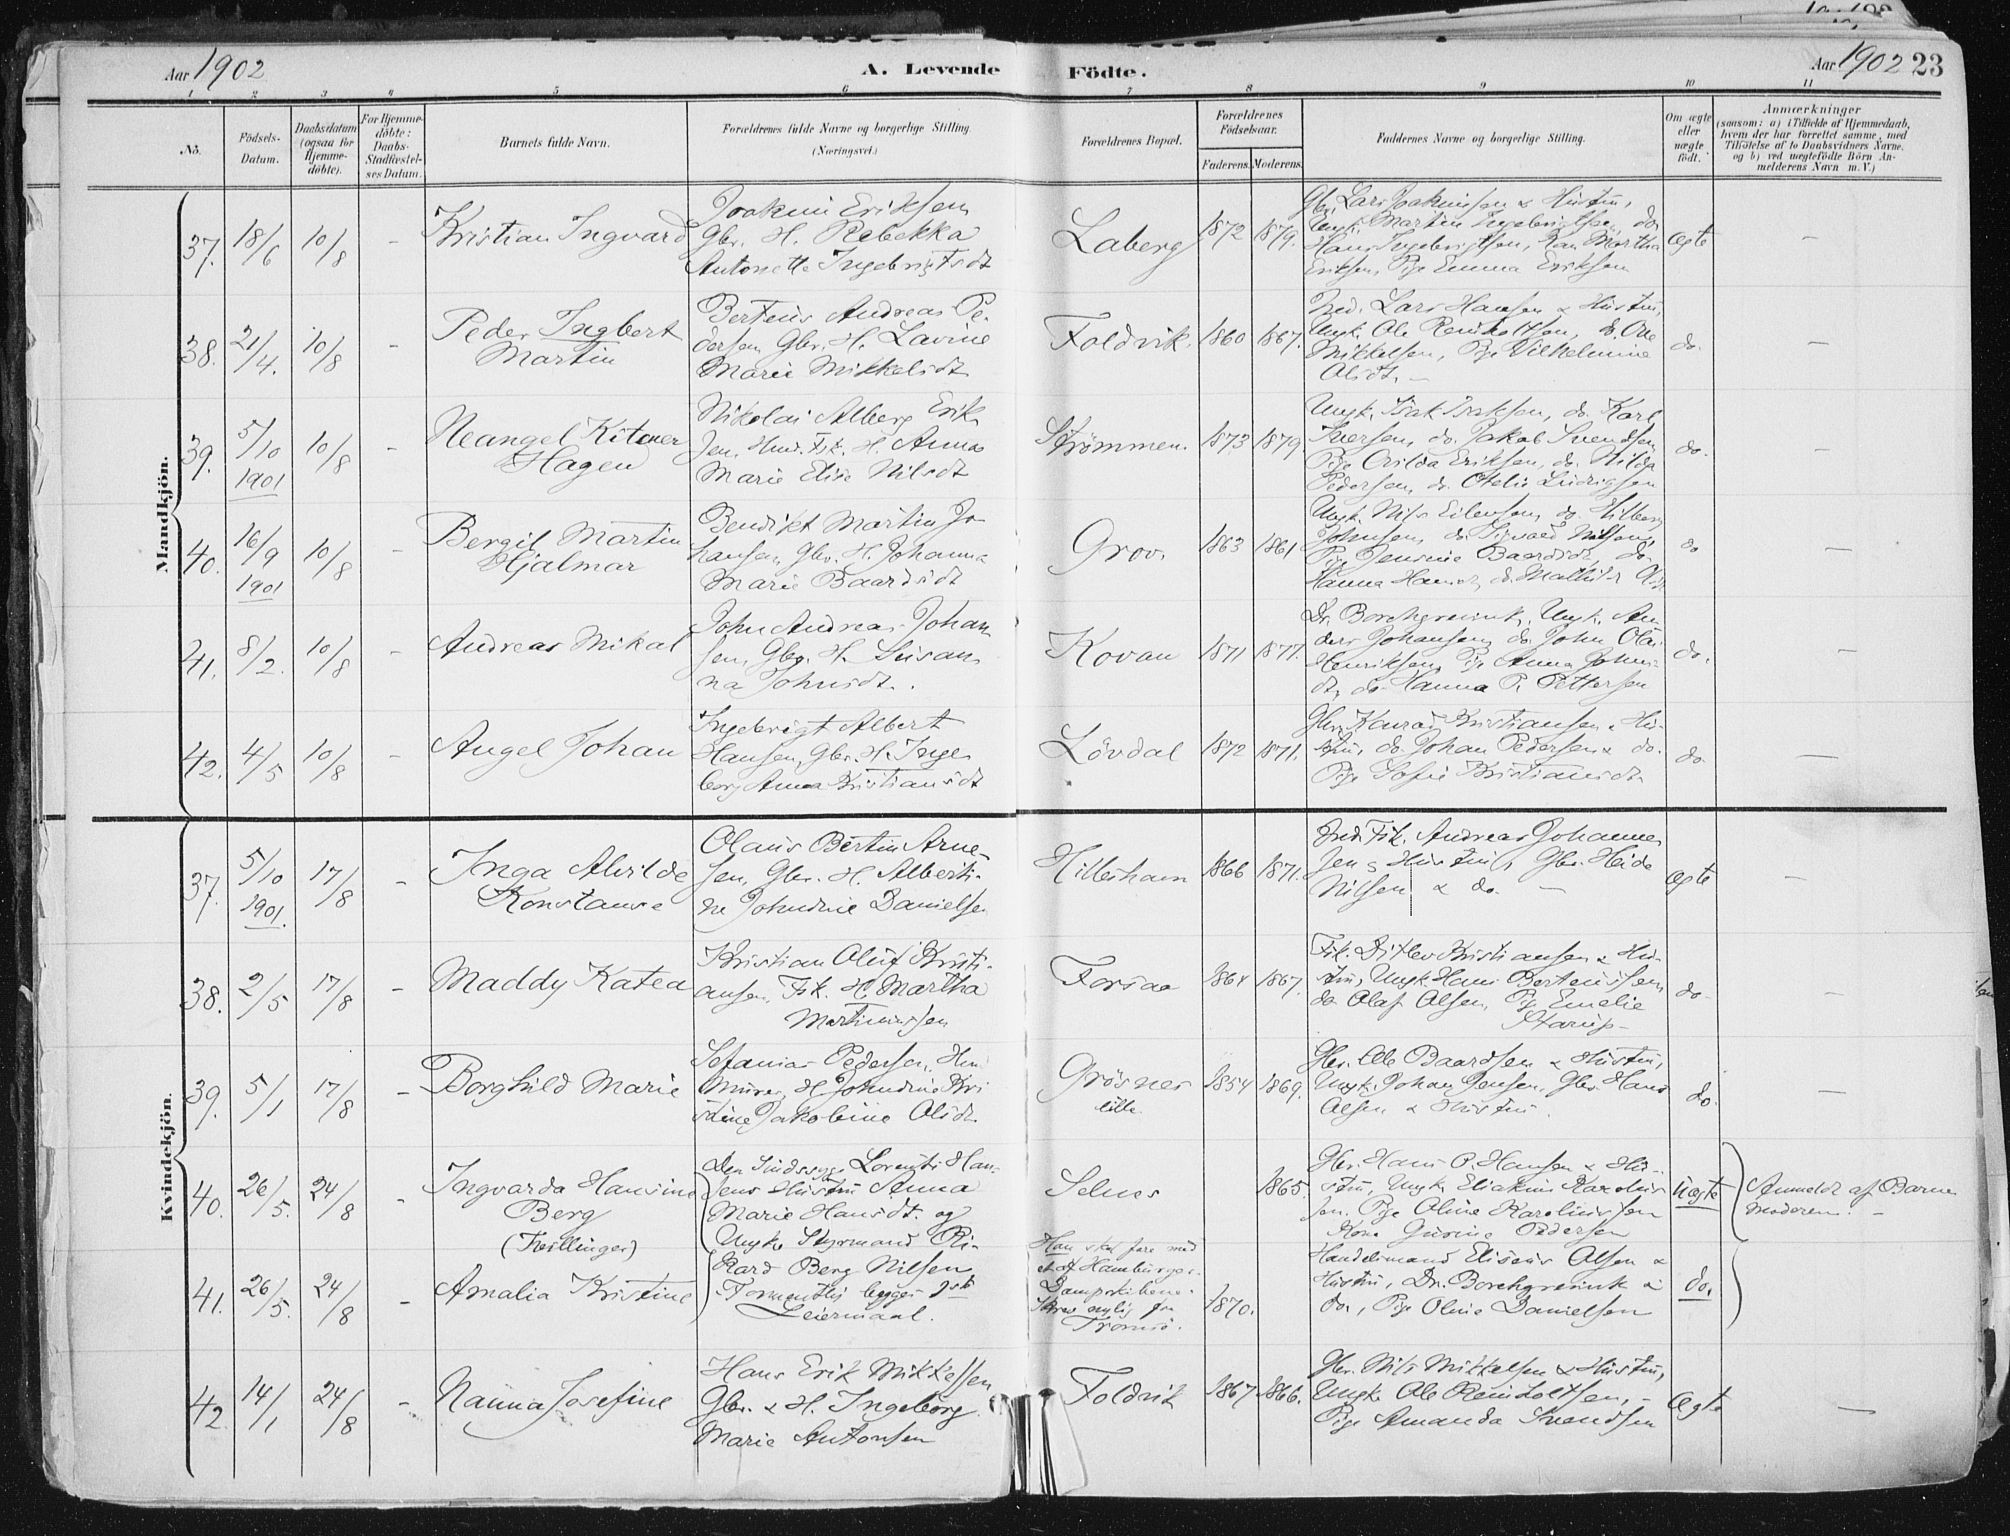 Aar 1902
A. Levende Födte.
Aar 1902 23
1 2 3 4 5 6 7 8 9 10 11
No.
Födsels-Datum.
Daabsdatum (ogsaa för Hjemmedöbte).
For Hjemmedöbte: Daabs-Stadfæstelses Datum.
Barnets fulde Navn.
Forældrenes fulde Navne og borgerlige Stilling.
(Næringsvei.)
Forældrenes Bopæl.
Forældrenes Födselsaar.
Faderens. Moderens.
Faddernes Navne og borgerlige Stilling.
Om ægte eller uægte födt.
Anmærkninger
(saasom: a) i Tilfælde af Hjemmedaab,
hvem der har forrettet samme, med
Tilföielse af to Daabsvidners Navne,
og b) ved uægtefödte Börn Anmelderens Navn m. V.)
Mandkjön.
37. 18/6 10/8 - Kristian Ingvard
Joakim Eriksen
Gbr. H. Rebekka
Antonette Ingebrigtsdt
Laberg 1872 1879.
Gbr. Lars Joakimsen & Hustru,
Ungk. Martin Ingebrigtsen, do
Hans Ingebrigtsen, Martha
Eriksen, Pige Emma Eriksen
Ægte -
38. 21/4. 10/8 - Peder Ingbert
Martin
Berteus Andreas Pe-
dersen, Gbr. H. Lavine
Marie Mikkelsdt
Foldvik. 1860 1867.
Ind. Lars Hansen & Hustru,
Ungk. Ole Reinholtsen, do. Ole
Mikkelsen, Pige Vilhelmine
Olsdt. -
do. -
39. 5/10 1901 10/8 - Neangel Kitener
Hagen
Nikolai Alberg Erik
sen, Ind. Fsk. H. Anna
Marie Elise Nilsdt
Strømmen. 1873 1879
Ungk. Isak Isaksen, do. Karl
Iversen, do. Jakob Svendsen
Pige Ovilda Eriksen, do. Hilda
Pedersen, do. Otelie Ludvigsen
do. -
40. 16/9 1901 10/8 - Bergit Martin
Hjalmar
Bendikt Martin Jo
hansen, Gbr. H. Johanna
Marie Baardsdt
Grov. 1863 1861
Ungk. Nils Eilertsen, do. Hilberg
Johnsen, do. Sigvard Nilsen,
Pige Jensine Baardsdt, do.
Hanna Hansdt, do. Mathilde Olsdt
do -
41. 8/2. 10/8 - Andreas Mikal
John Andreas Johan
sen, Gbr. H. Susan
na Johnsdt.
Kovan 1871 1877.
Dr. Borchgrevink, Ungk. An
ders Johansen, do. John Olai
Henriksen, Pige Anna Johns-
dt, do. Hanna P. Pettersen
do. -
42. 4/5 10/8 - Angel Johan
Ingebrigt Albert
Hansen, Gbr. H. Inge
borg Anna Kristiansdt
Løvdal 1872 1871.
Gbr. Konrad Kristiansen & Hu-
stru, do. Johan Pedersen & do.
Pige Sofie Kristiansdt.
do. -
Kvindekjön.
37. 5/10 1901. 17/8 - Inga Alvilde
Konstanse
Olaus Bertin Arne-
sen, Gbr. H. Alberti-
ne Johndine Danielsen
Hilleshavn 1866 1871.
Ind. Fsk. Andreas Johanne
sen & Hustru, Gbr. Heide
Nilsen & do. -
Ægte -
38. 2/5 17/8 - Maddy Katea
Kristian Oluf Kristi-
ansen, Fsk. H. Martha
Martinussen
Forsaa 1864 1867.
Fsk. Ditlev Kristiansen & Hu-
stru, Ungk. Hans Berteussen,
do Olaf Olsen, Pige Emelie
Starup -
do. -
39. 5/1 17/8 - Borghild Marie
Sefanias Pedersen, Hus
murer, H. Johndine Kri
stine Jakobine Olsdt.
Grøsnes
lille. 1854 1869.
Gbr. Ole Baardsen & Hustru,
Ungk. Johan Jensen, Gbr. Hans
Olsen & Hustru
do. -
40. 26/5. 24/8 - Ingvarda Hansine
Berg
(Tvillinger)
Den Sindssyge Lorents Han-
sens Hustru Anna
Marie Hansdt. og
Ungk. Styrmand Ri-
kard Berg Nilsen
Formentlig begges 1ste
Leiermaal.
Selnes 1865.
Gbr. Hans P. Hansen & Hu-
stru, Ungk. Eliakim Karolius
sen, Pige Oline Karoliussen
Kone Gurine Pedersen
Uægte
Anmeldt af Barne
moderen. -
41. 26/5. 24/8 - Amalia Kristine
Han skal fare med
et af Hamburger-
Dampskibene.
Skrev nylig fra
Tromsø. 1870.
Handelsmand Eliseus Olsen &
Hustru, Dr. Borchgrevink &
do., Pige Oline Danielsen
do.
42. 14/1 24/8 - Nanna Josefine
Hans Erik Mikkelsen
Gbr. & H. Ingeborg
Marie Antonsen
Foldvik 1867. 1866.
Gbr. Nils Mikkelsen & Hustru,
Ungk. Ole Reinholtsen, -
Pige Amanda Svendsen
Ægte -